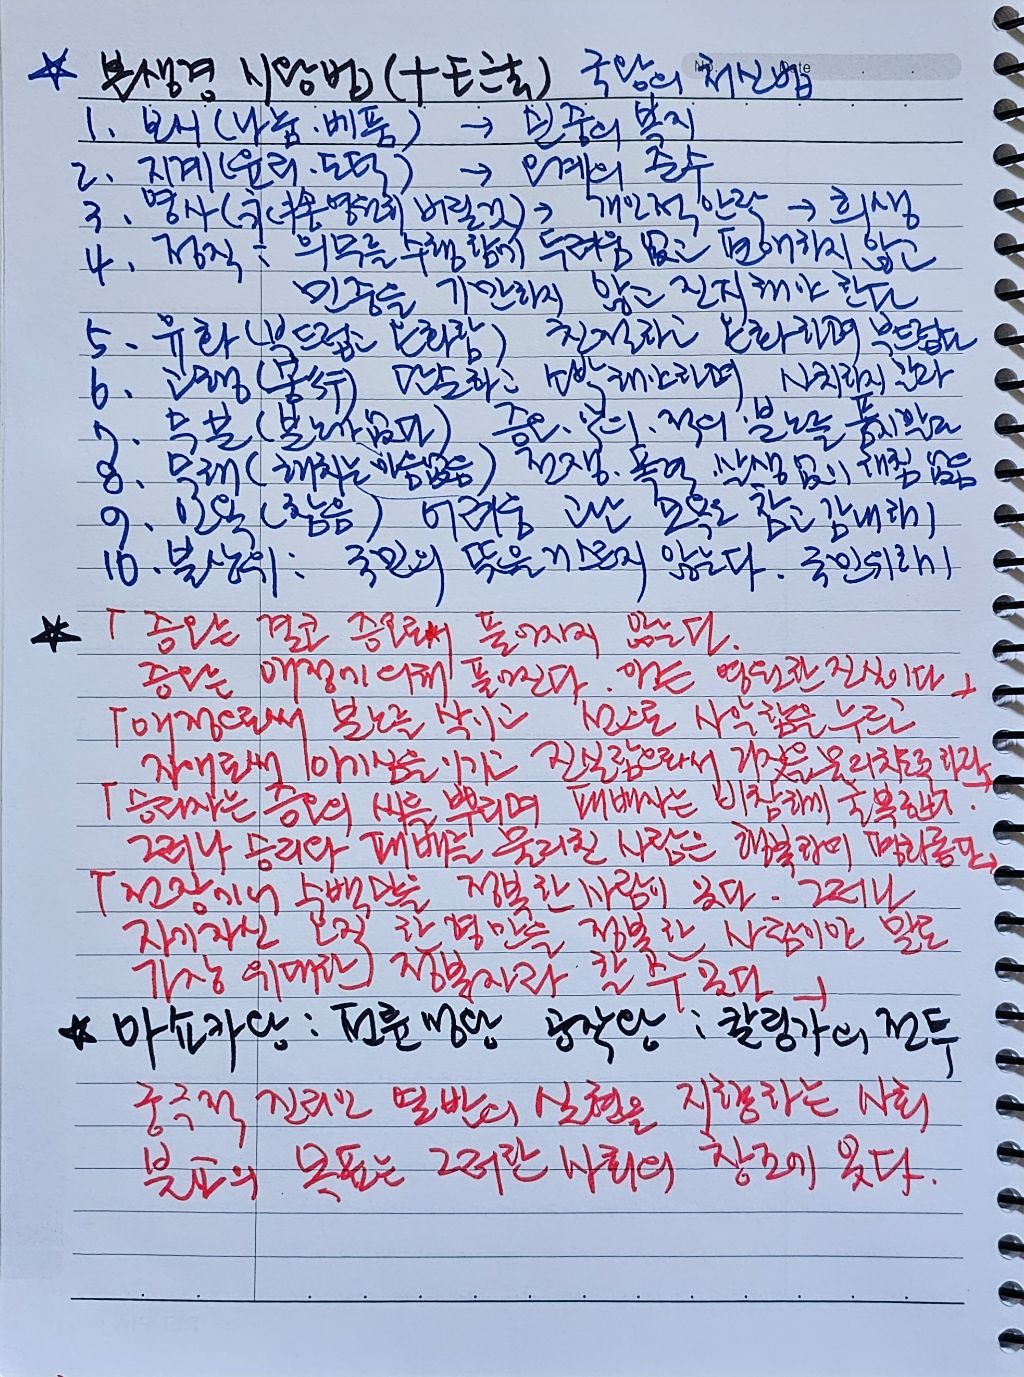 ☆ 본생경 시왕법(十王法) 국왕의 처신법
No. Date
1. 보시(나눔·베풂) → 민중의 복지
2. 지계(윤리·도덕) → 의 준수
3. 영사(영원히 버릴것) → 개인적 안락 → 희생
4. 정직 : 의무를 수행함에 두려움 없고 편애하지 않고
민중을 기만하지 않고 진지해야 한다
5. 유화(부드럽고 온화함) 친절하고 온화하며 부드럽다
6. 고행(몽수) 만족하고 소박해야하며 사치하지
7. 무분(분노가 없다) 증오·악의·적의·분노를 품지않고
8. 무해(해치는 마음없음) 전쟁·폭력·살생 없이 해침 없음
9. 인욕(참음) 어려움 고난 모욕도 참고 감내하기
10. 불상위 : 국민의 뜻을 거스르지 않는다. 국민위하기
☆ 「증오는 결코 증오로써 풀어지지 않는다.
증오는 애정에 의해 풀어진다. 이것은 영원한 진실이다」
「애정으로써 분노를 삭이고 선으로 사악함을 누르고
자애로써 이기심을 이기고 진실됨으로써 거짓을 물리치도록 하라」
「승리자는 증오의 씨를 뿌리며 패배자는 비참하게 굴복한다.
그러나 승리와 패배를 물리친 사람은 행복하며 평화롭다」
「전장에서 수백만을 정복한 사람이 있다. 그러나
자기자신 오직 한 명만을 정복한 사람이야 말로
가장 위대한 정복자라 할 수 있다」
☆ 아쇼카왕 : 전륜성왕 : 칼링가의 전투
궁극적 진리인 열반의 실현을 지향하는 사회
불교의 목표는 그러한 사회의 창조에 있다.